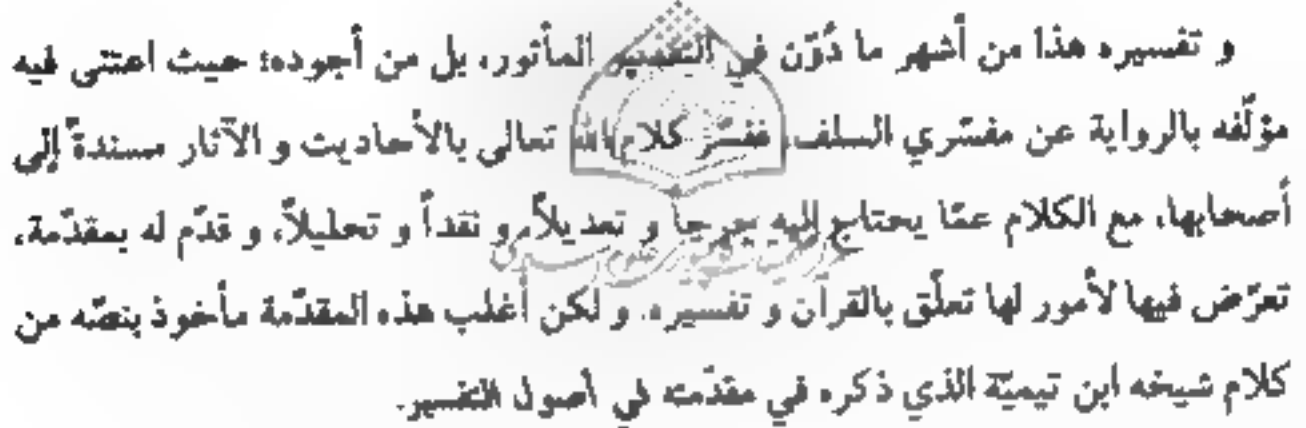 و تفسيره هذا من أشهر ما دُوّن في التفسير المأثور، بل من أجوده؛ حيث اعتنى فيه
مؤلّفه بالرواية عن مفسّري السلف، ففسّر كلام الله تعالى بالأحاديث و الآثار مسندةً إلى
أصحابها، مع الكلام عمّا يحتاج إليه جرحاً و تعديلاً، و نقداً و تحليلاً، و قدّم له بمقدّمة،
تعرّض فيها لأمور لها تعلّق بالقرآن و تفسيره. و لكن أغلب هذه المقدّمة مأخوذ بنصّه من
كلام شيخه ابن تيميّة الذي ذكره في مقدّمته في أصول التفسير.